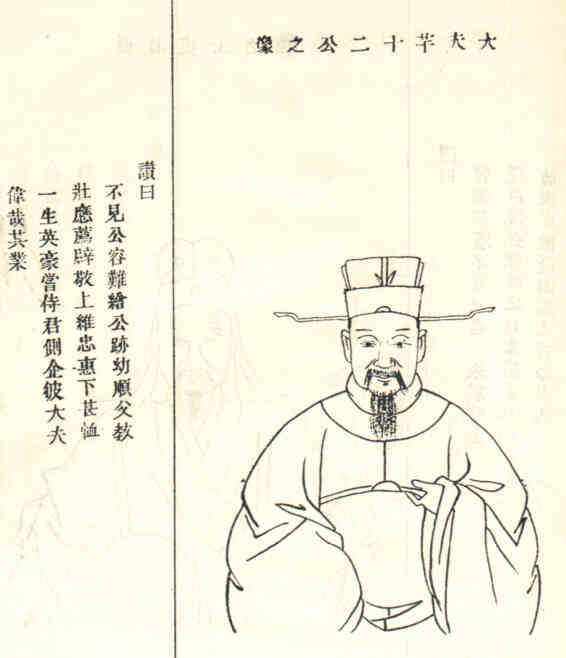 大夫芊十二公之像
讚曰
不見公容難繪公跡幼順父教
壯應薦辟敬上維忠惠下甚恤
一生英豪嘗侍君側企彼大夫
偉哉其業